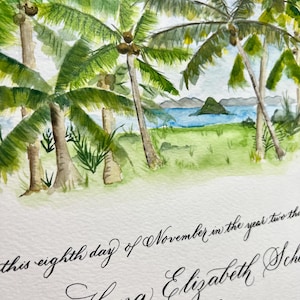 this eighth day of November in the year two
Elizabeth